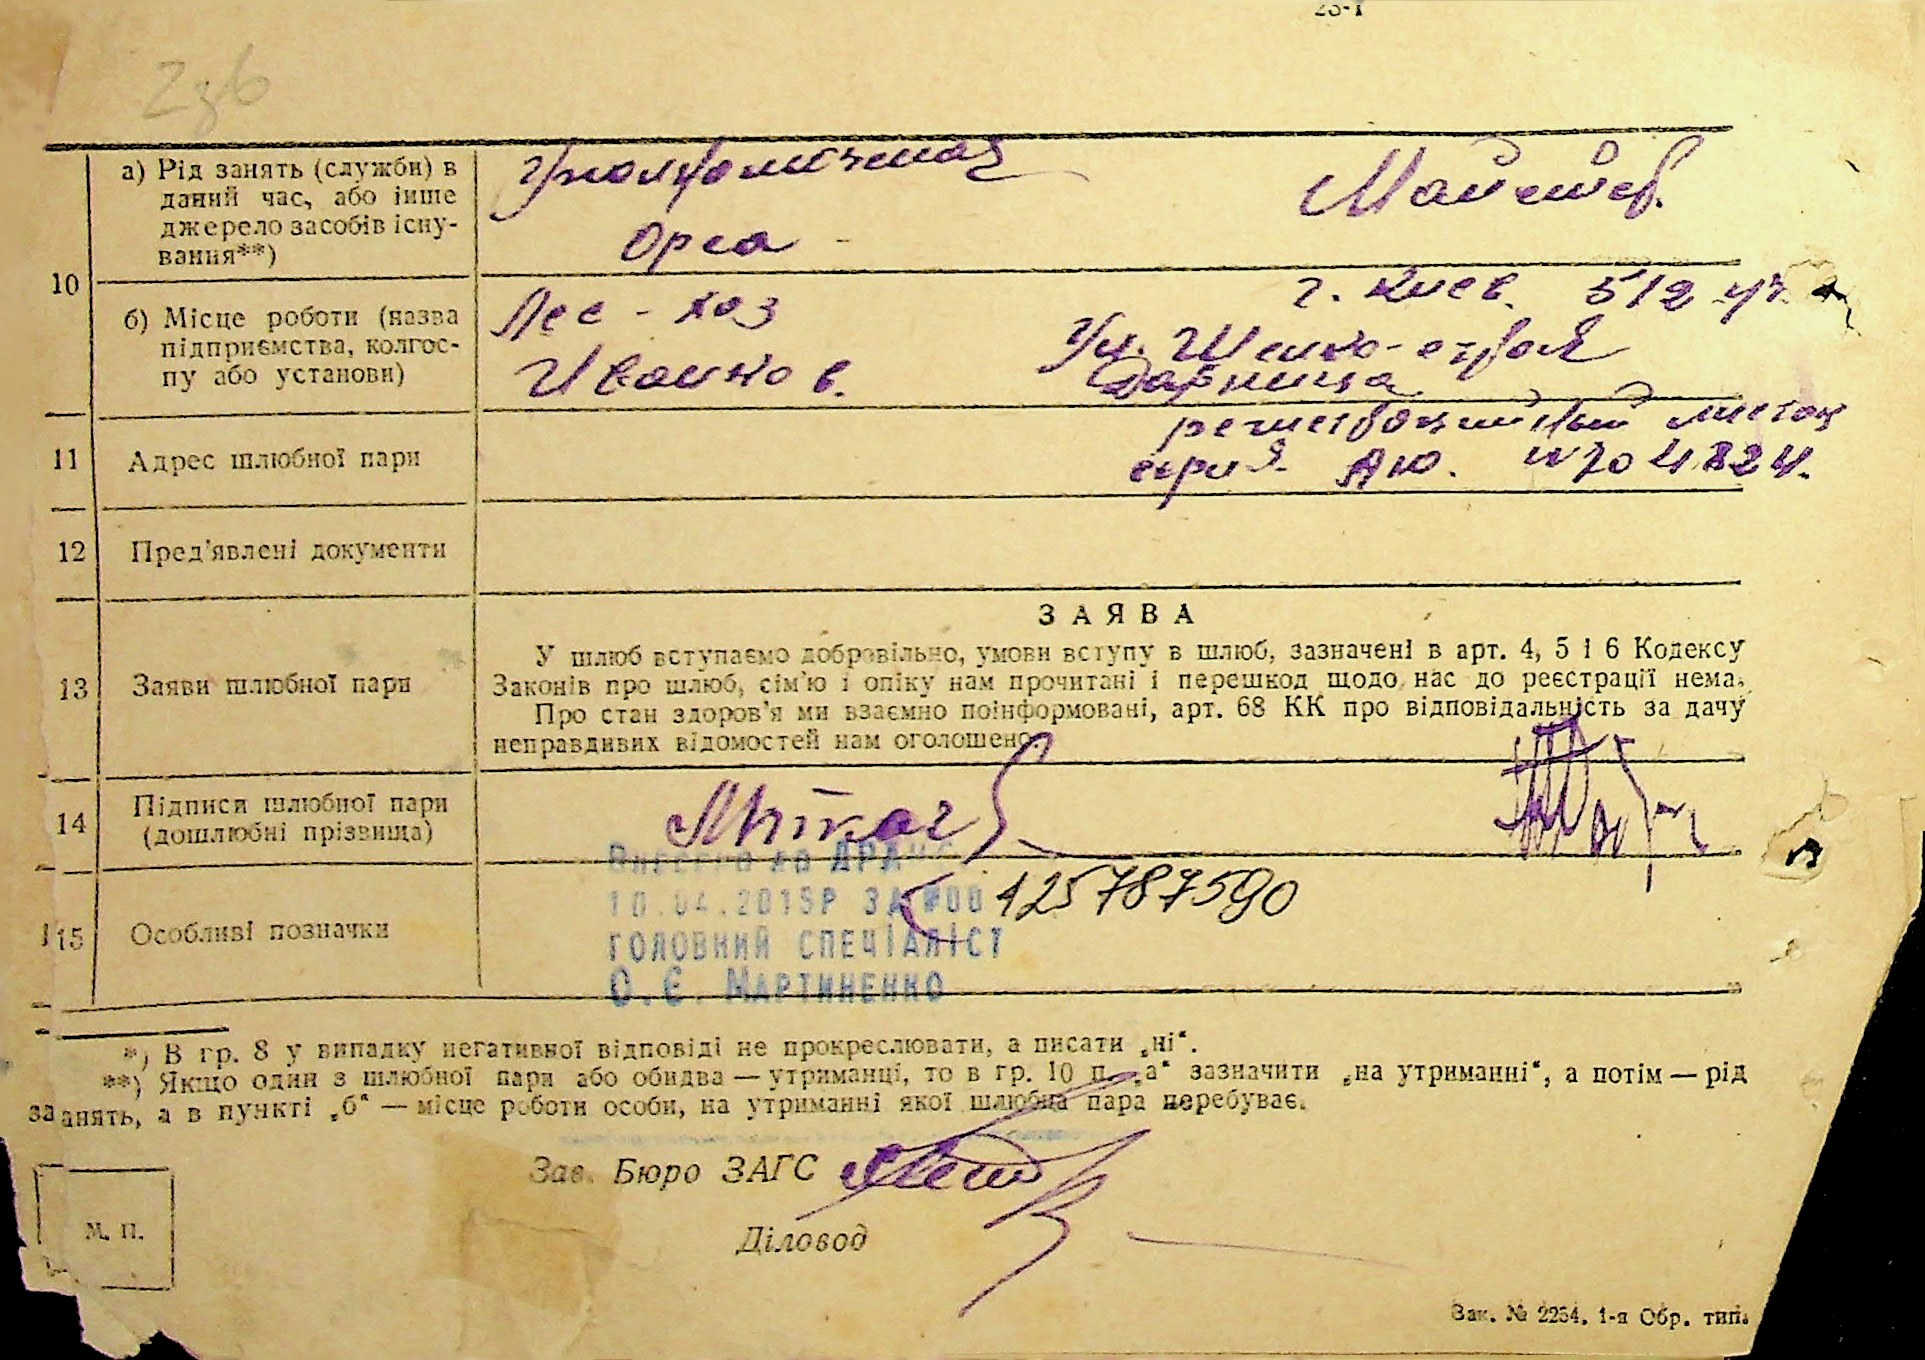 а) Рід занять (служби) в
даний час, або інше
джерело засобів існу-
вання**)
Орса
10
б) Місце роботи (назва
підприємства, колгос-
пу або установи)
Лес - хоз
Иванков.
г. Киев. 512
Ул.
Дарница
11
Адрес шлюбної пари
листок
серия АЮ. №704824.
12
Пред'явлені документи
13
Заяви шлюбної пари
ЗАЯВА
У шлюб вступаємо добровільно, умови вступу в шлюб, зазначені в арт. 4, 5 і 6 Кодексу
Законів про шлюб, сім'ю і опіку нам прочитані і перешкод щодо нас до реєстрації нема.
Про стан здоров'я ми взаємно поінформовані, арт. 68 КК про відповідальність за дачу
неправдивих відомостей нам оголошено.
14
Підписи шлюбної пари
(дошлюбні прізвища)
15
Особливі позначки
Внесено до ДРАЦС
10.04.2015Р ЗА №00 425787590
ГОЛОВНИЙ СПЕЦІАЛІСТ
О.Є. МАРТИНЕНКО
*) В гр. 8 у випадку негативної відповіді не прокреслювати, а писати „ні“.
**) Якщо один з шлюбної пари або обидва — утриманці, то в гр. 10 п. „а“ зазначити „на утриманні“, а потім — рід
занять, а в пункті „б“ — місце роботи особи, на утриманні якої шлюбна пара перебуває.
Зав. Бюро ЗАГС
М. П.
Діловод
Зак. № 2254. 1-я Обр. тип.